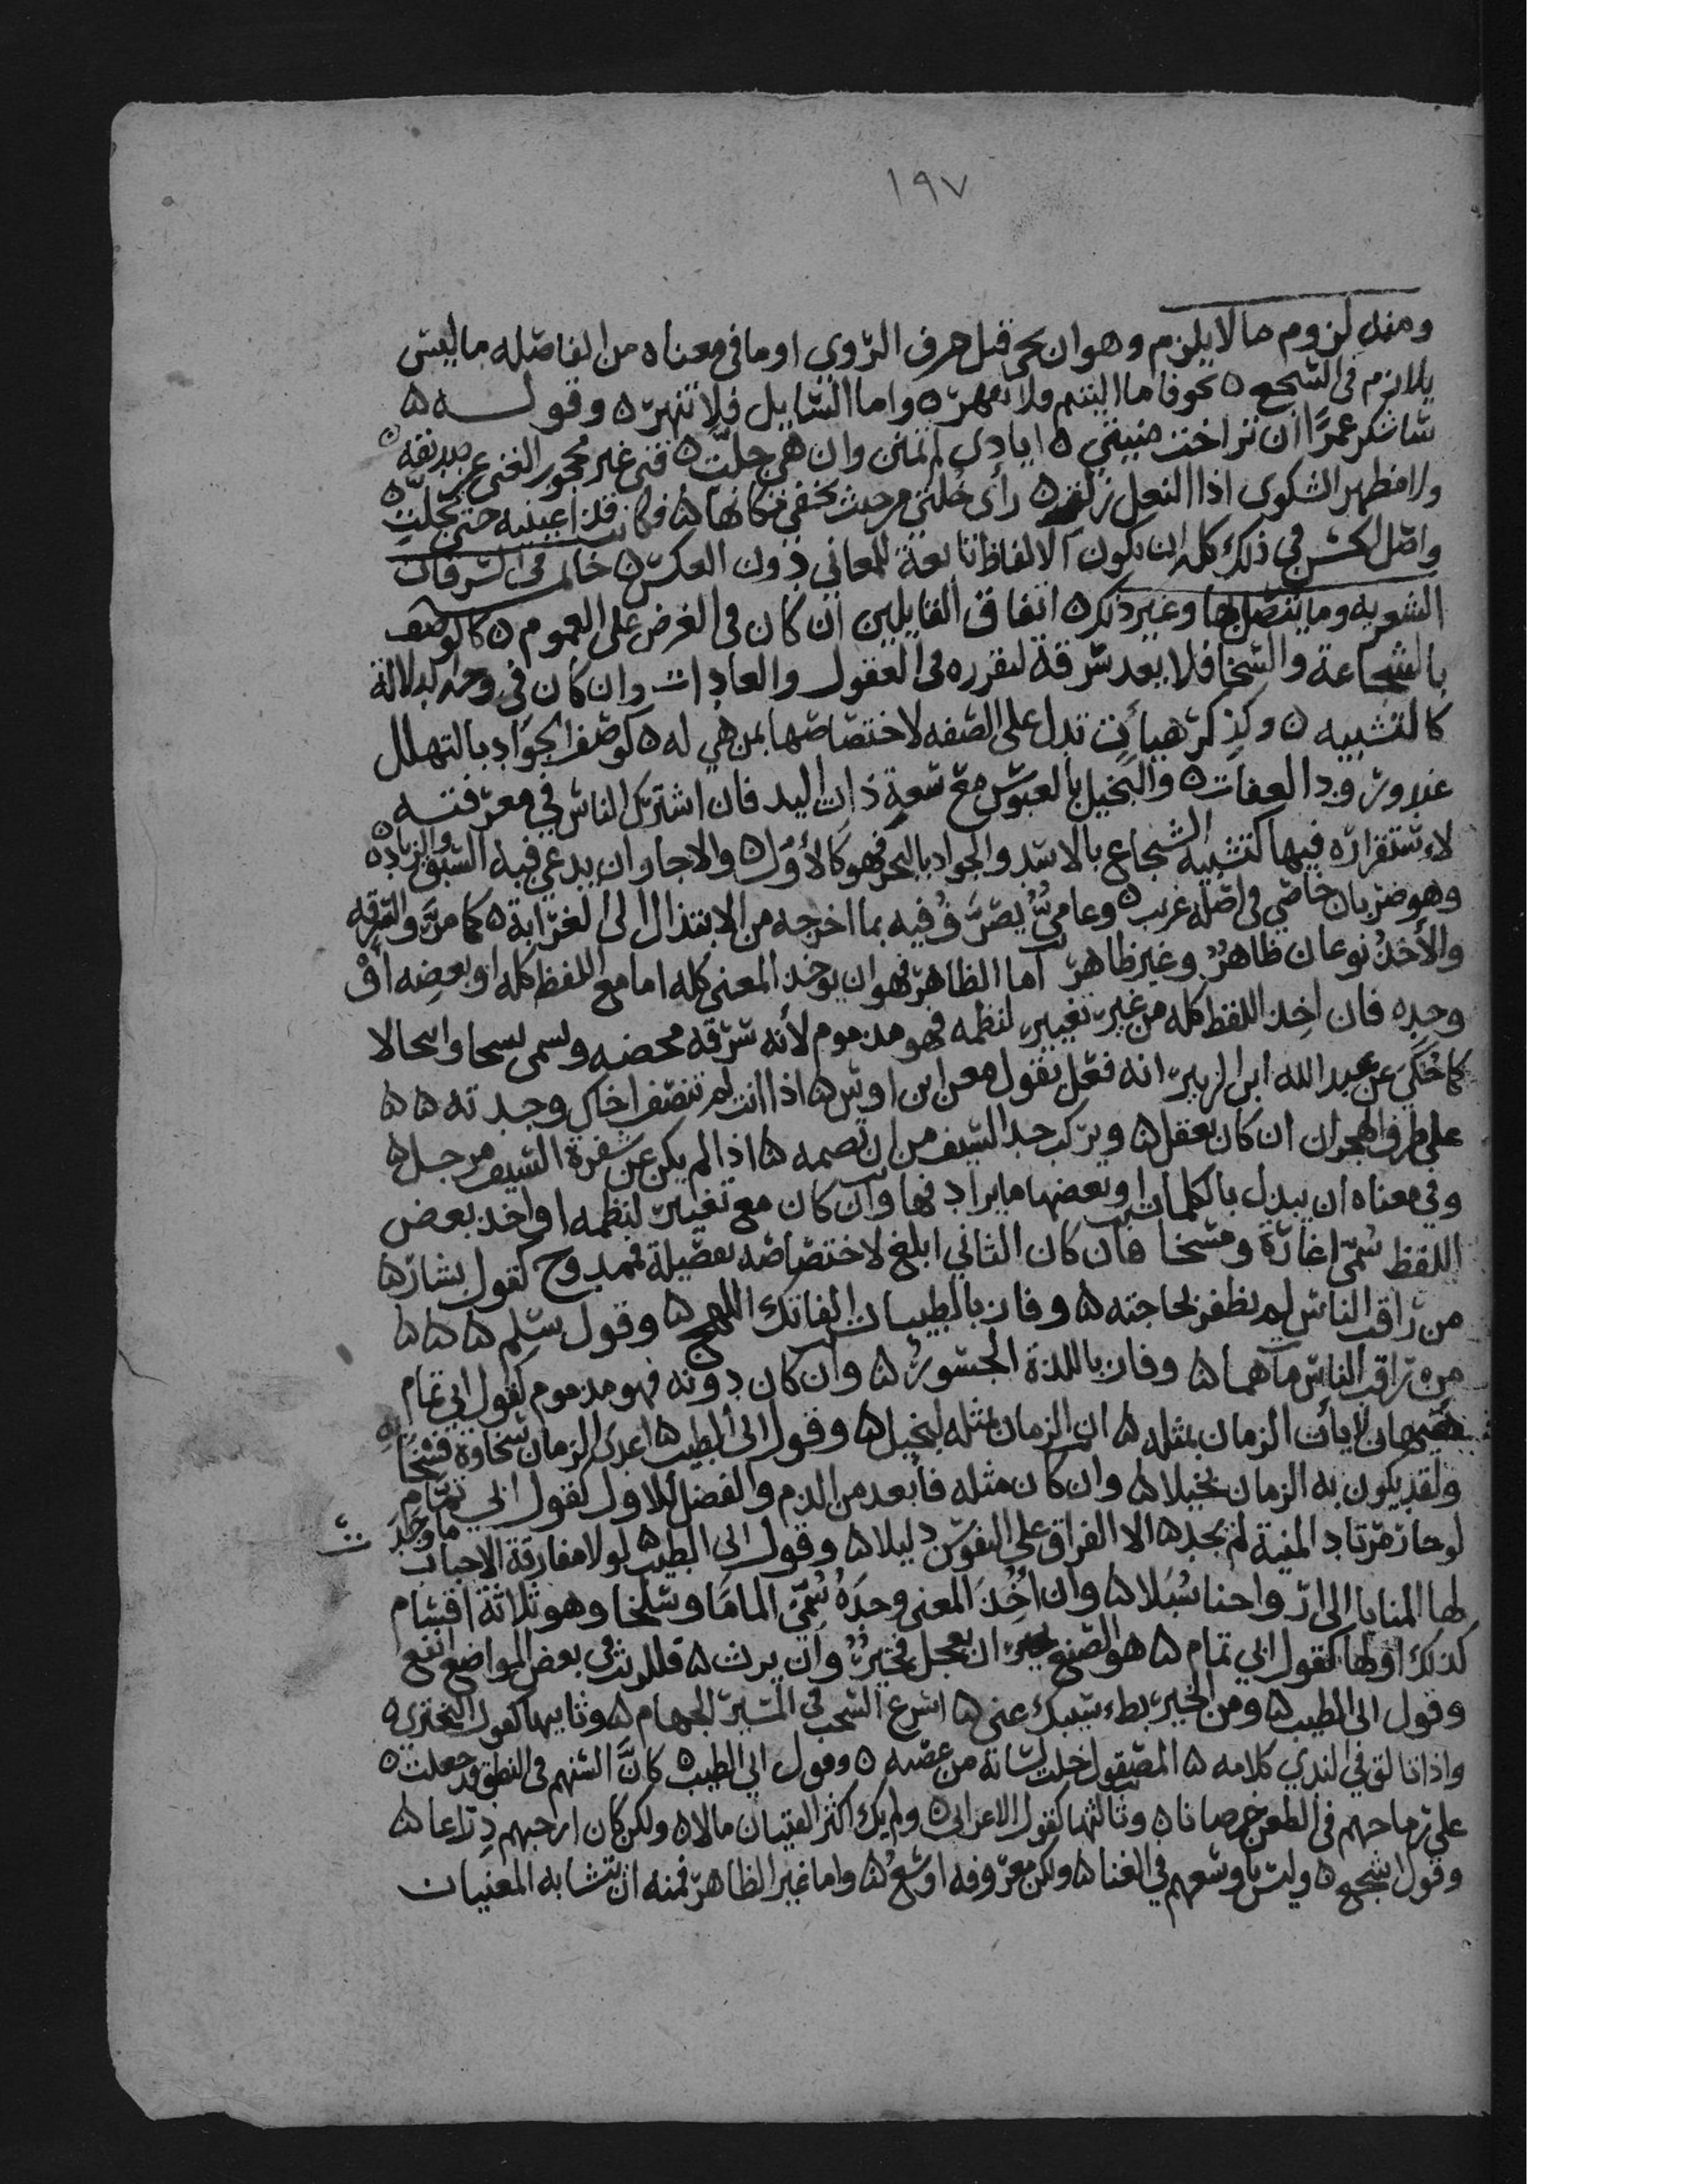 ١٩٧
ومنه لزوم ما لا يلزم وهو ان يجى قبل حرف الروي او ما في معناه من الفاصله ما ليس
بلازم في السجع ه نحو فاما اليتيم فلا تقهر ه واما السايل فلا تنهر ه وقولــــه ه
ساشكر عمرًا ان تراخت منيتي ه ايادي لم تمنن وان هي جلّت ه فتى غير محجوب الغنى عن صديقه ه
ولا مظهر الشكوى اذا النعل زلت ه رأى خلتي من حيث يخفى مكانها ه فكانت قذا عينيه حتى تجلت ه
واصل الحسن في ذلك كله ان يكون الالفاظ تابعة للمعاني دون العكس ه خاتمه في السرقات
الشعريه وما يتصل بها وغير ذلك ه اتفاق القايلين ان كان في الغرض على العموم ه كالوصف
بالشجاعة والسخا فلا يعد سرقة لتقرره في العقول والعادات وان كان في وجه الدلالة
كالتشبيه ه وكذكر هيأت تدل على الصفه لاختصاصها بمن هي له ه كوصف الجواد بالتهلل
عند ورود العفات ه والبخيل بالعبوس مع سعة ذات اليد فان اشترك الناس في معرفتــه
لاستقراره فيها كتشبيه الشجاع بالاسد والجواد بالبحر فهو كالأوّل ه والا جاز ان يدعي فيه السبق والزيادة ه
وهو ضربان خاصّي في اصله غريب ه وعاميٌّ يصرّف فيه بما اخرجه من الابتذال الى الغرابة ه كما مرّ والسرقه
والأخذ نوعان ظاهرٌ وغير ظاهر اما الظاهر فهو ان يوخذ المعنى كله اما مع اللفظ كله او بعضه أوْ
وحده فان اخذ اللفظ كله من غير تغيير لنظمه فهو مذموم لأنه سرقه محضه ويسمى نسخا وانتحالا
كما حُكيَ عن عبد الله ابن الزبير انه فعل بقول معن ابن اوس ه اذا انت لم تنصف اخاك وجدته ه ه
على طرف الهجران ان كان يعقل ه ويركب حد السيف من ان تضيمه ه اذا لم يكن عن شفرة السيف مزحل ه
وفي معناه ان يبدل بالكلمات او بعضها ما يرادفها وان كان مع تغيير لنظمه او اخذ بعض
اللفظ سُمّي اغارة ومسخا فان كان الثاني ابلغ لاختصاصه بفضيلة فممدوح كقول بشار ه
من راقب الناس لم يظفر بحاجته ه وفاز بالطيبات الفاتك اللهج ه وقول سلم ه ه ه
من راقب الناس مات هما ه وفاز باللذة الجسورُ ه وان كان دونه فهو مذموم كقول ابي تمام
هيهات لا يأت الزمان بمثله ه ان الزمان بمثله لبخيل ه وقول ابي الطيب ه اعدى الزمان سخاوة فسخا به
ولقد يكون به الزمان بخيلا ه وان كان مثله فأبعد من الذم والفضل للاول كقول ابي تمام
لو حار مرتاد المنية لم يجد ه الا الفراق على النفوس دليلا ه وقول ابي الطيب ه لولا مفارقة الاحباب ما وجدت
لها المنايا الى ارواحنا سُبلا ه وان أُخذ المعنى وحدَهُ سُمّي الماما وسلخا وهو ثلاثة اقسام
كذلك اولها كقول ابي تمام ه هو الصنع ان يعجل فخيرٌ وان يرث ه فللريث في بعض المواضع انفع
وقول ابي الطيب ه ومن الخير بطء سيبك عني ه اسرع السحب في المسير الجهام ه وثانيها كقول البحتري ه
واذا تالق في الندي كلامه ه المصقول خلت لسانه من عضبه ه وقول ابي الطيب ه كأنّ السنهم في النطق قد جعلت ه
على رماحهم في الطعن خرصانا ه وثالثها كقول الاعرابي ه ولم يك اكثر الفتيان مالا ه ولكن كان ارحبهم ذراعا ه
وقول اشجع ه وليس باوسعهم في الغنا ه ولكن معروفه اوسَعُ ه واما غير الظاهر فمنه ان يتشابه المعنيان